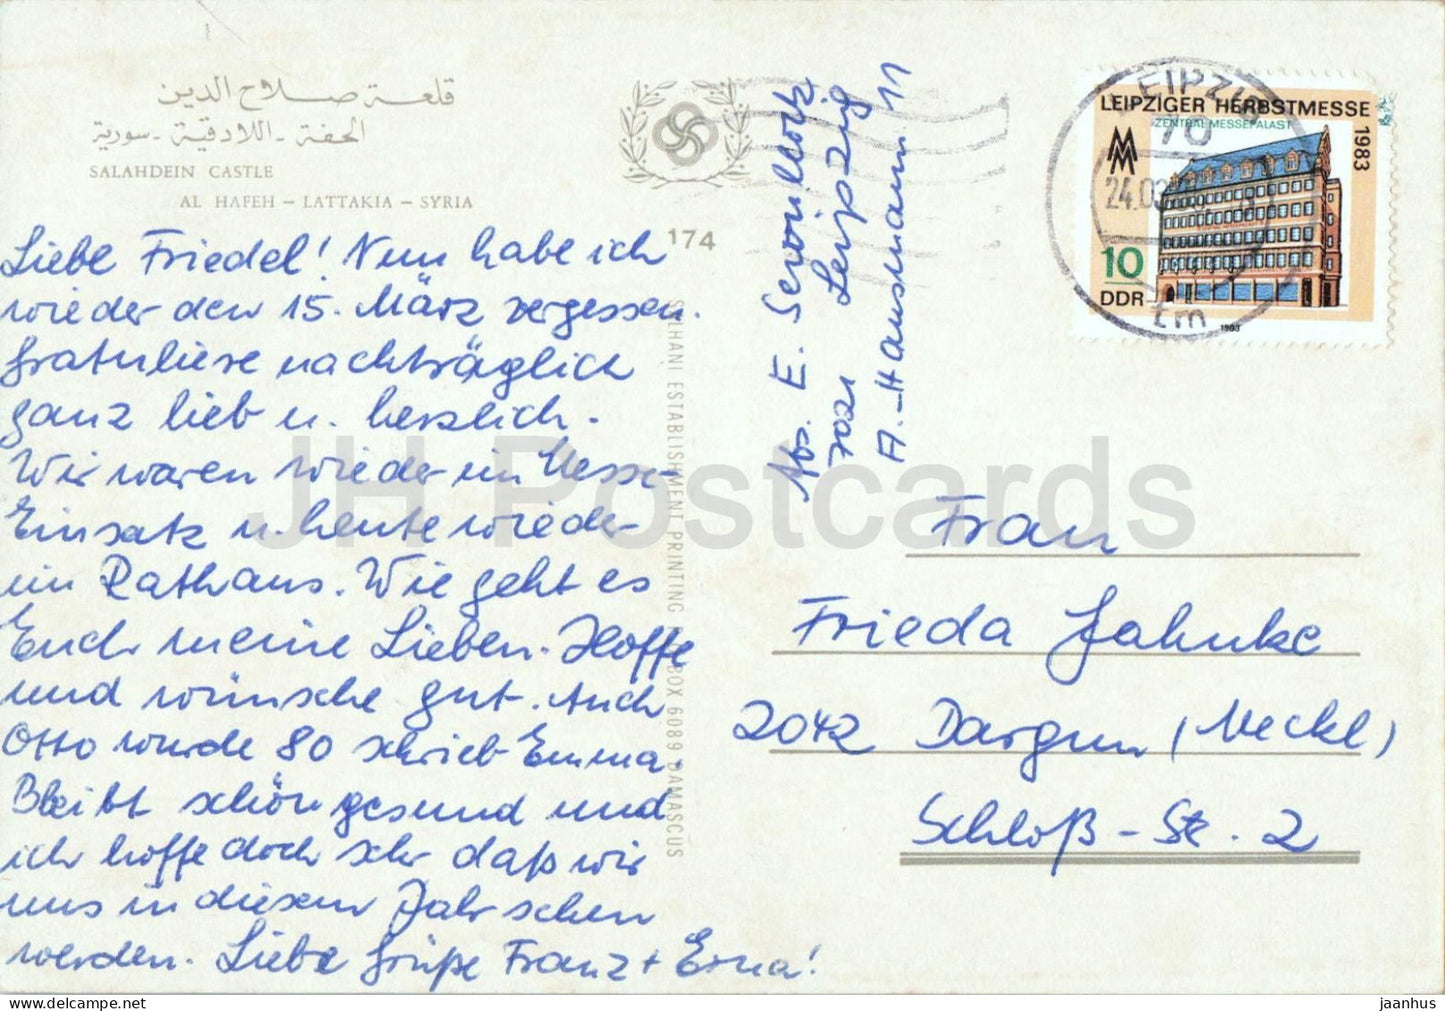 قلعة صلاح الدين
الحفة - اللاذقية - سورية
SALAHDEIN CASTLE
AL HAFEH – LATTAKIA – SYRIA
174
Liebe Friedel! Nun habe ich
wieder den 15. März vergessen.
Gratuliere nachträglich
ganz lieb u. herzlich.
Wir waren wieder im Messe-
Einsatz u. heute wieder
im Rathaus. Wie geht es
Euch meine Lieben. Hoffe
und wünsche gut. Auch
Otto wurde 80 schrieb Emma.
Bleibt schön gesund und
ich hoffe doch sehr daß wir
uns in diesem Jahr sehen
werden. Liebe Grüße Franz + Erna!
ESTABLISHMENT PRINTING BOX 6089 DAMASCUS
Abs. E.
7021 Leipzig
A.-Hausmann. 11
LEIPZIG
70
24.03
tm
LEIPZIGER HERBSTMESSE 1983
ZENTRALMESSEPALAST
MM
10
DDR
1983
Frau
Frieda Jahnke
2042 Dargun (Meckl)
Schloß-Str. 2
JH Postcards
jaanhus